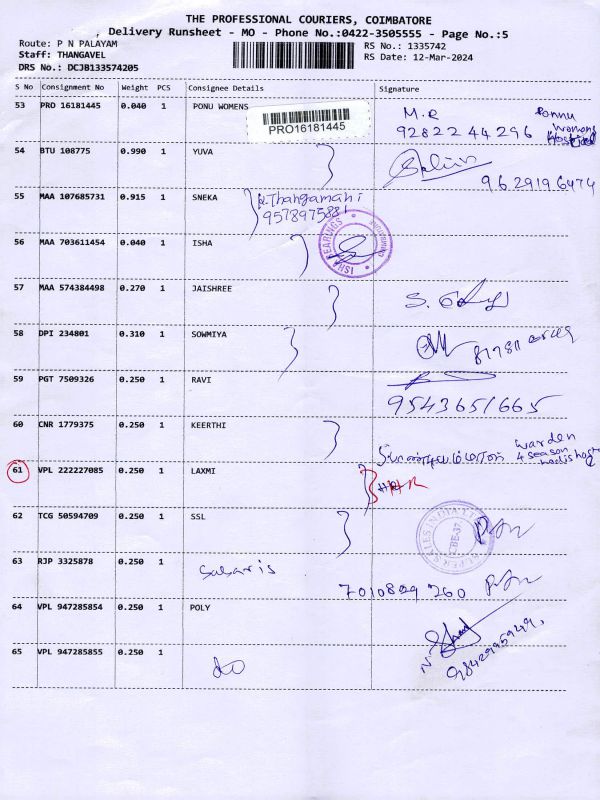 THE PROFESSIONAL COURIERS, COIMBATORE
Delivery Runsheet - MO - Phone No.:0422-3505555 - Page No.:5
Route: P N PALAYAM
RS No.: 1335742
Staff: THANGAVEL
RS Date: 12-Mar-2024
DRS No.: DCJB133574205
S No Consignment No Weight PCS Consignee Details Signature
53 PRO 16181445 0.040 1 PONU WOMENS
PRO16181445
M.R
92822 44296
Ponnu
Womens
Hospital
54 BTU 108775 0.990 1 YUVA
9629196474
55 MAA 107685731 0.915 1 SNEKA
K.Thangamani
9578975881
56 MAA 703611454 0.040 1 ISHA
ISHA BEARINGS
57 MAA 574384498 0.270 1 JAISHREE
58 DPI 234801 0.310 1 SOWMIYA
59 PGT 7509326 0.250 1 RAVI
9543651665
60 CNR 1779375 0.250 1 KEERTHI
warden
4 season
61 VPL 222227085 0.250 1 LAXMI
HR
62 TCG 50594709 0.250 1 SSL
SUPER SALES INDIA LTD
CBE-37
63 RJP 3325878 0.250 1
Sabaris
7010809 260
64 VPL 947285854 0.250 1 POLY
65 VPL 947285855 0.250 1
do
9842995949,